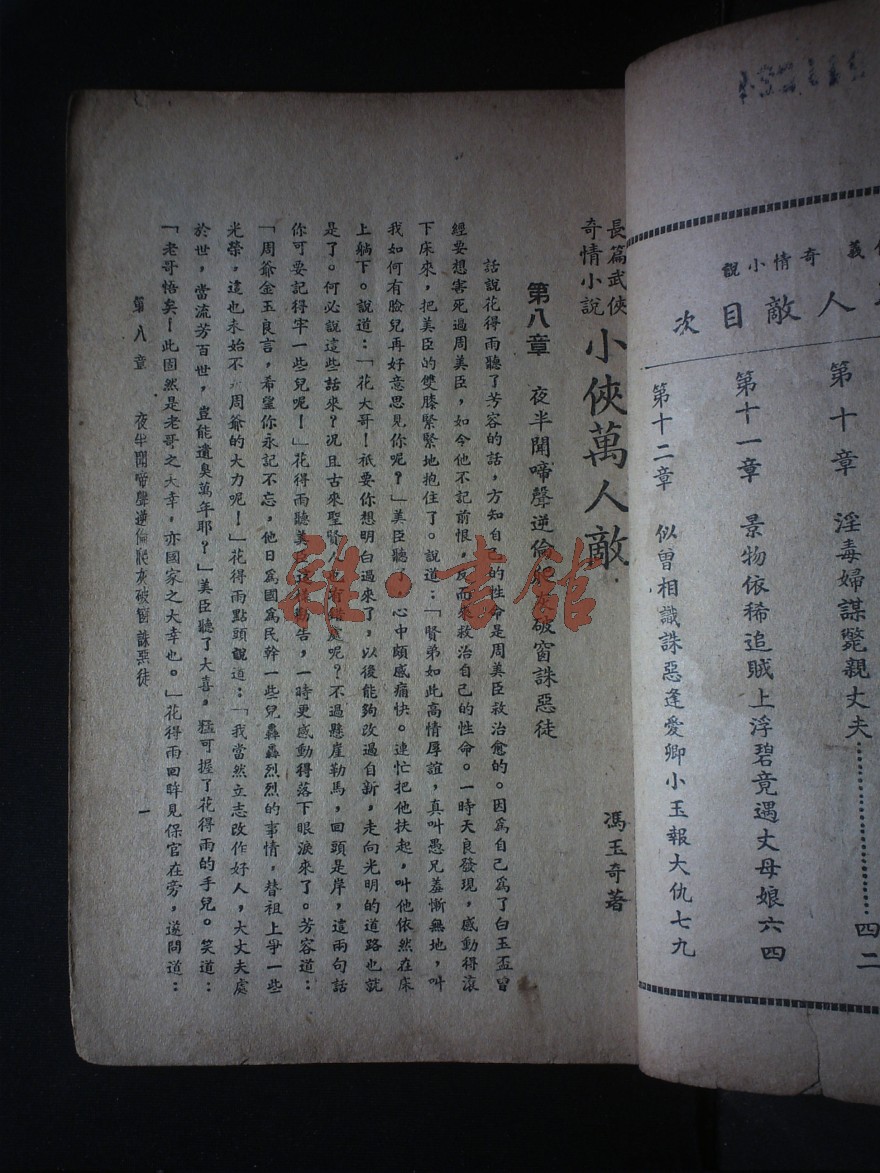 義
奇情小說
人敵目次
第十章　淫毒婦謀斃親丈夫…………………四二
第十一章　景物依稀追賊上浮碧竟遇丈母娘六四
第十二章　似曾相識誅惡逢愛卿小玉報大仇七九
長篇武俠
奇情小說
小俠萬人敵
馮玉奇著
第八章　夜半聞啼聲逆倫爬灰破窗誅惡徒
話說花得雨聽了芳容的話，方知自己的性命是周美臣救治愈的。因爲自己爲了白玉盃曾
經要想害死過周美臣，如今他不記前恨，反而來救治自己的性命。一時天良發現，感動得滾
下床來，把美臣的雙膝緊緊地抱住了。說道：「賢弟如此高情厚誼，真叫愚兄羞慚無地，叫
我如何有臉兒再好意思見你呢？」美臣聽了，心中頗感痛快。連忙把他扶起，叫他依然在床
上躺下。說道：「花大哥！祇要你想明白過來了，以後能夠改過自新，走向光明的道路也就
是了。何必說這些話來？況且古來聖賢人也有錯處呢？不過懸崖勒馬，回頭是岸，這兩句話
你可要記得牢一些兒呢！」花得雨聽美臣這樣勸告，一時更感動得落下眼淚來了。芳容道：
「周爺金玉良言，希望你永記不忘，他日爲國爲民幹一些兒轟轟烈烈的事情，替祖上爭一些
光榮，這也未始不周爺的大力呢！」花得雨點頭說道：「我當然立志改作好人，大丈夫處
於世，當流芳百世，豈能遺臭萬年耶？」美臣聽了大喜，猛可握了花得雨的手兒。笑道：
「老哥悟矣！此固然是老哥之大幸，亦國家之大幸也。」花得雨回眸見保官在旁，遂問道：
第八章　夜半聞啼聲逆倫爬灰破窗誅惡徒　一
雜·書館